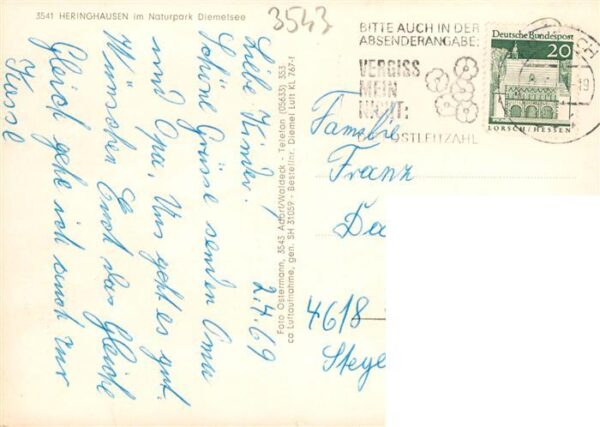 3541 HERINGHAUSEN im Naturpark Diemelsee
3543
BITTE AUCH IN DER
ABSENDERANGABE:
VERGISS
MEIN
NICHT:
POSTLEITZAHL
Deutsche Bundespost
20
LORSCH/HESSEN
19
2.4.69
Liebe Kinder.
Schöne Grüsse senden Oma
und Opa. Uns geht es gut.
Wünschen Euch das Gleiche
Gleich gehe ich sonst zur
Kasse
Foto Ostermann, 3543 Adorf/Waldeck - Telefon (05633) 353
ca Luftaufnahme, gen. SH 31059 - Bestellnr. Diemel Luft KL 767-1
Familie
Franz
Da
4618